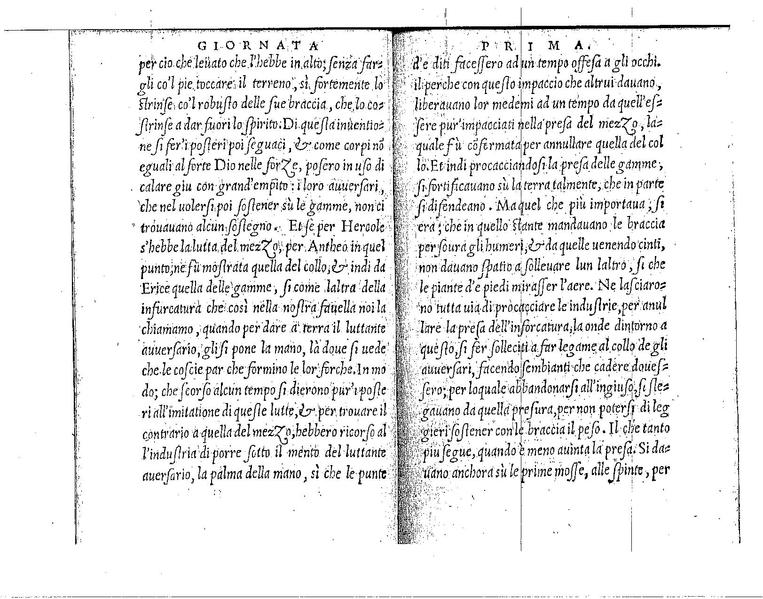 GIORNATA
per cio che leuato che l'hebbe in alto; senza far=
gli co'l pie toccare il terreno, sì fortemente lo
strinse co'l robusto delle sue braccia, che lo co=
strinse a dar fuori lo spirito: Di questa inuentio=
ne si fer'i posteri poi seguaci, & come corpi nō
eguali al forte Dio nelle forze, posero in uso di
calare giu con grand'empito: i loro auuersari,
che nel uolersi poi sostener sù le gamme, non ci
trouauano alcun sostegno. Et se per Hercole
s'hebbe la lutta del mezzo, per Antheo in quel
punto; ne fù mostrata quella del collo, & indi da
Erice quella delle gamme, si come laltra della
infurcatura che così nella nostra fauella noi la
chiamamo, quando per dare a' terra il luttante
auuersario, gli si pone la mano, là doue si uede
che le coscie par che formino le lor forche. In mo
do; che scorso alcun tempo si dierono pur'i poste
ri all'imitatione di queste lutte, & per trouare il
contrario a quella del mezzo; hebbero ricorso al
l'industria di porre sotto il mento del luttante
auersario, la palma della mano, sì che le punte
PRIMA.
d'e diti facessero ad un tempo offesa a gli occhi.
il perche con questo impaccio che altrui dauano,
liberauano lor medemi ad un tempo da quell'es=
sere pur'impacciati nella presa del mezzo, la=
quale fù cōfermata per annullare quella del col
lo. Et indi procacciandosi la presa delle gamme,
si fortificauano sù la terra talmente, che in parte
si difendeano. Ma quel che più importaua, si
era; che in quello stante mandauano le braccia
per soura gli humeri, & da quelle uenendo cinti,
non dauano spatio a solleuare lun laltro, si che
le piante d'e piedi mirasser l'aere. Ne lasciaro=
no tutta uia di procacciare le industrie, per anul
lare la presa dell'inforcatura, la onde dintorno a
questo, si fer solleciti a far legame al collo de gli
auuersari, facendo sembianti che cadere doues=
sero; per loquale abbandonarsi all'ingiuso, si sle=
gauano da quella presura, per non potersi di leg
gieri sostener con le braccia il peso. Il che tanto
piu segue, quando è meno auinta la presa. Si da=
uano anchora sù le prime mosse, alle spinte, per